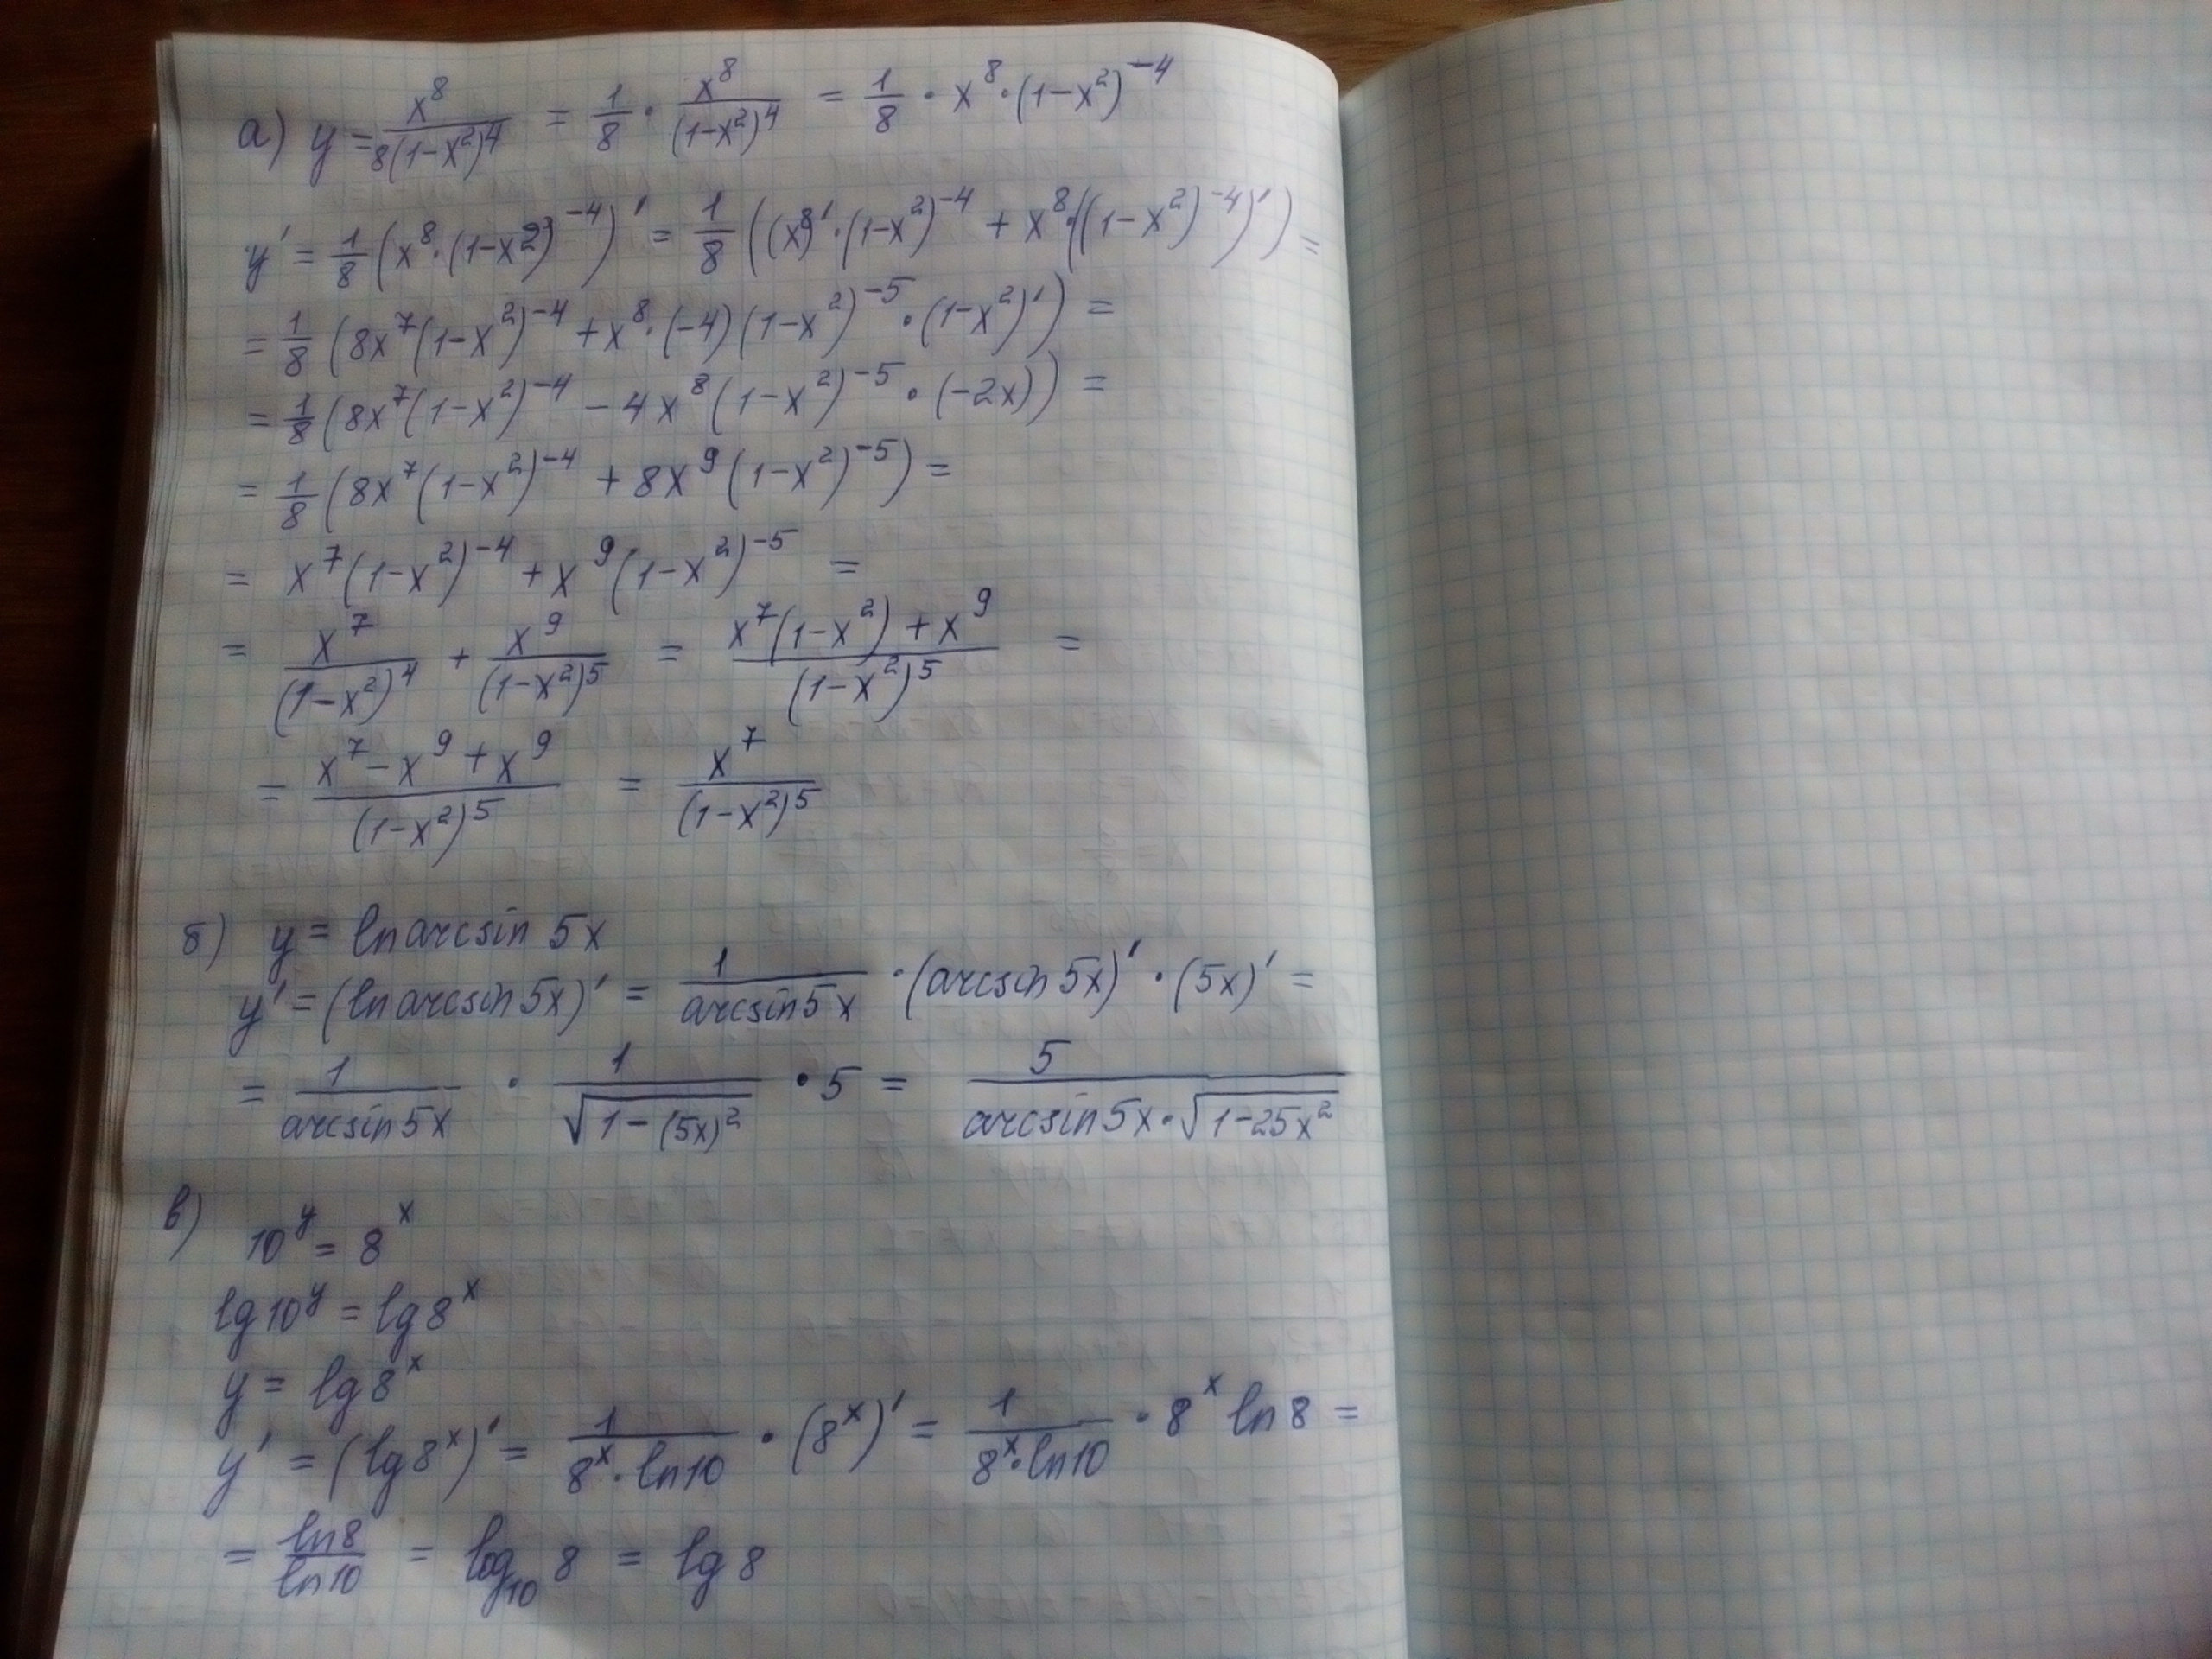 а) y = x⁸/(8(1-x²)⁴) = 1/8 · x⁸/(1-x²)⁴ = 1/8 · x⁸ · (1-x²)⁻⁴
y' = 1/8 (x⁸ · (1-x²)⁻⁴)' = 1/8 ((x⁸)' · (1-x²)⁻⁴ + x⁸ · ((1-x²)⁻⁴)') =
= 1/8 (8x⁷(1-x²)⁻⁴ + x⁸ · (-4)(1-x²)⁻⁵ · (1-x²)') =
= 1/8 (8x⁷(1-x²)⁻⁴ - 4x⁸(1-x²)⁻⁵ · (-2x)) =
= 1/8 (8x⁷(1-x²)⁻⁴ + 8x⁹(1-x²)⁻⁵) =
= x⁷(1-x²)⁻⁴ + x⁹(1-x²)⁻⁵ =
= x⁷/(1-x²)⁴ + x⁹/(1-x²)⁵ = (x⁷(1-x²) + x⁹)/(1-x²)⁵ =
= (x⁷ - x⁹ + x⁹)/(1-x²)⁵ = x⁷/(1-x²)⁵
б) y = ln arcsin 5x
y' = (ln arcsin 5x)' = 1/(arcsin 5x) · (arcsin 5x)' · (5x)' =
= 1/(arcsin 5x) · 1/√(1-(5x)²) · 5 = 5/(arcsin 5x · √(1-25x²))
в) 10^y = 8^x
lg 10^y = lg 8^x
y = lg 8^x
y' = (lg 8^x)' = 1/(8^x · ln 10) · (8^x)' = 1/(8^x · ln 10) · 8^x ln 8 =
= ln 8/ln 10 = log₁₀ 8 = lg 8